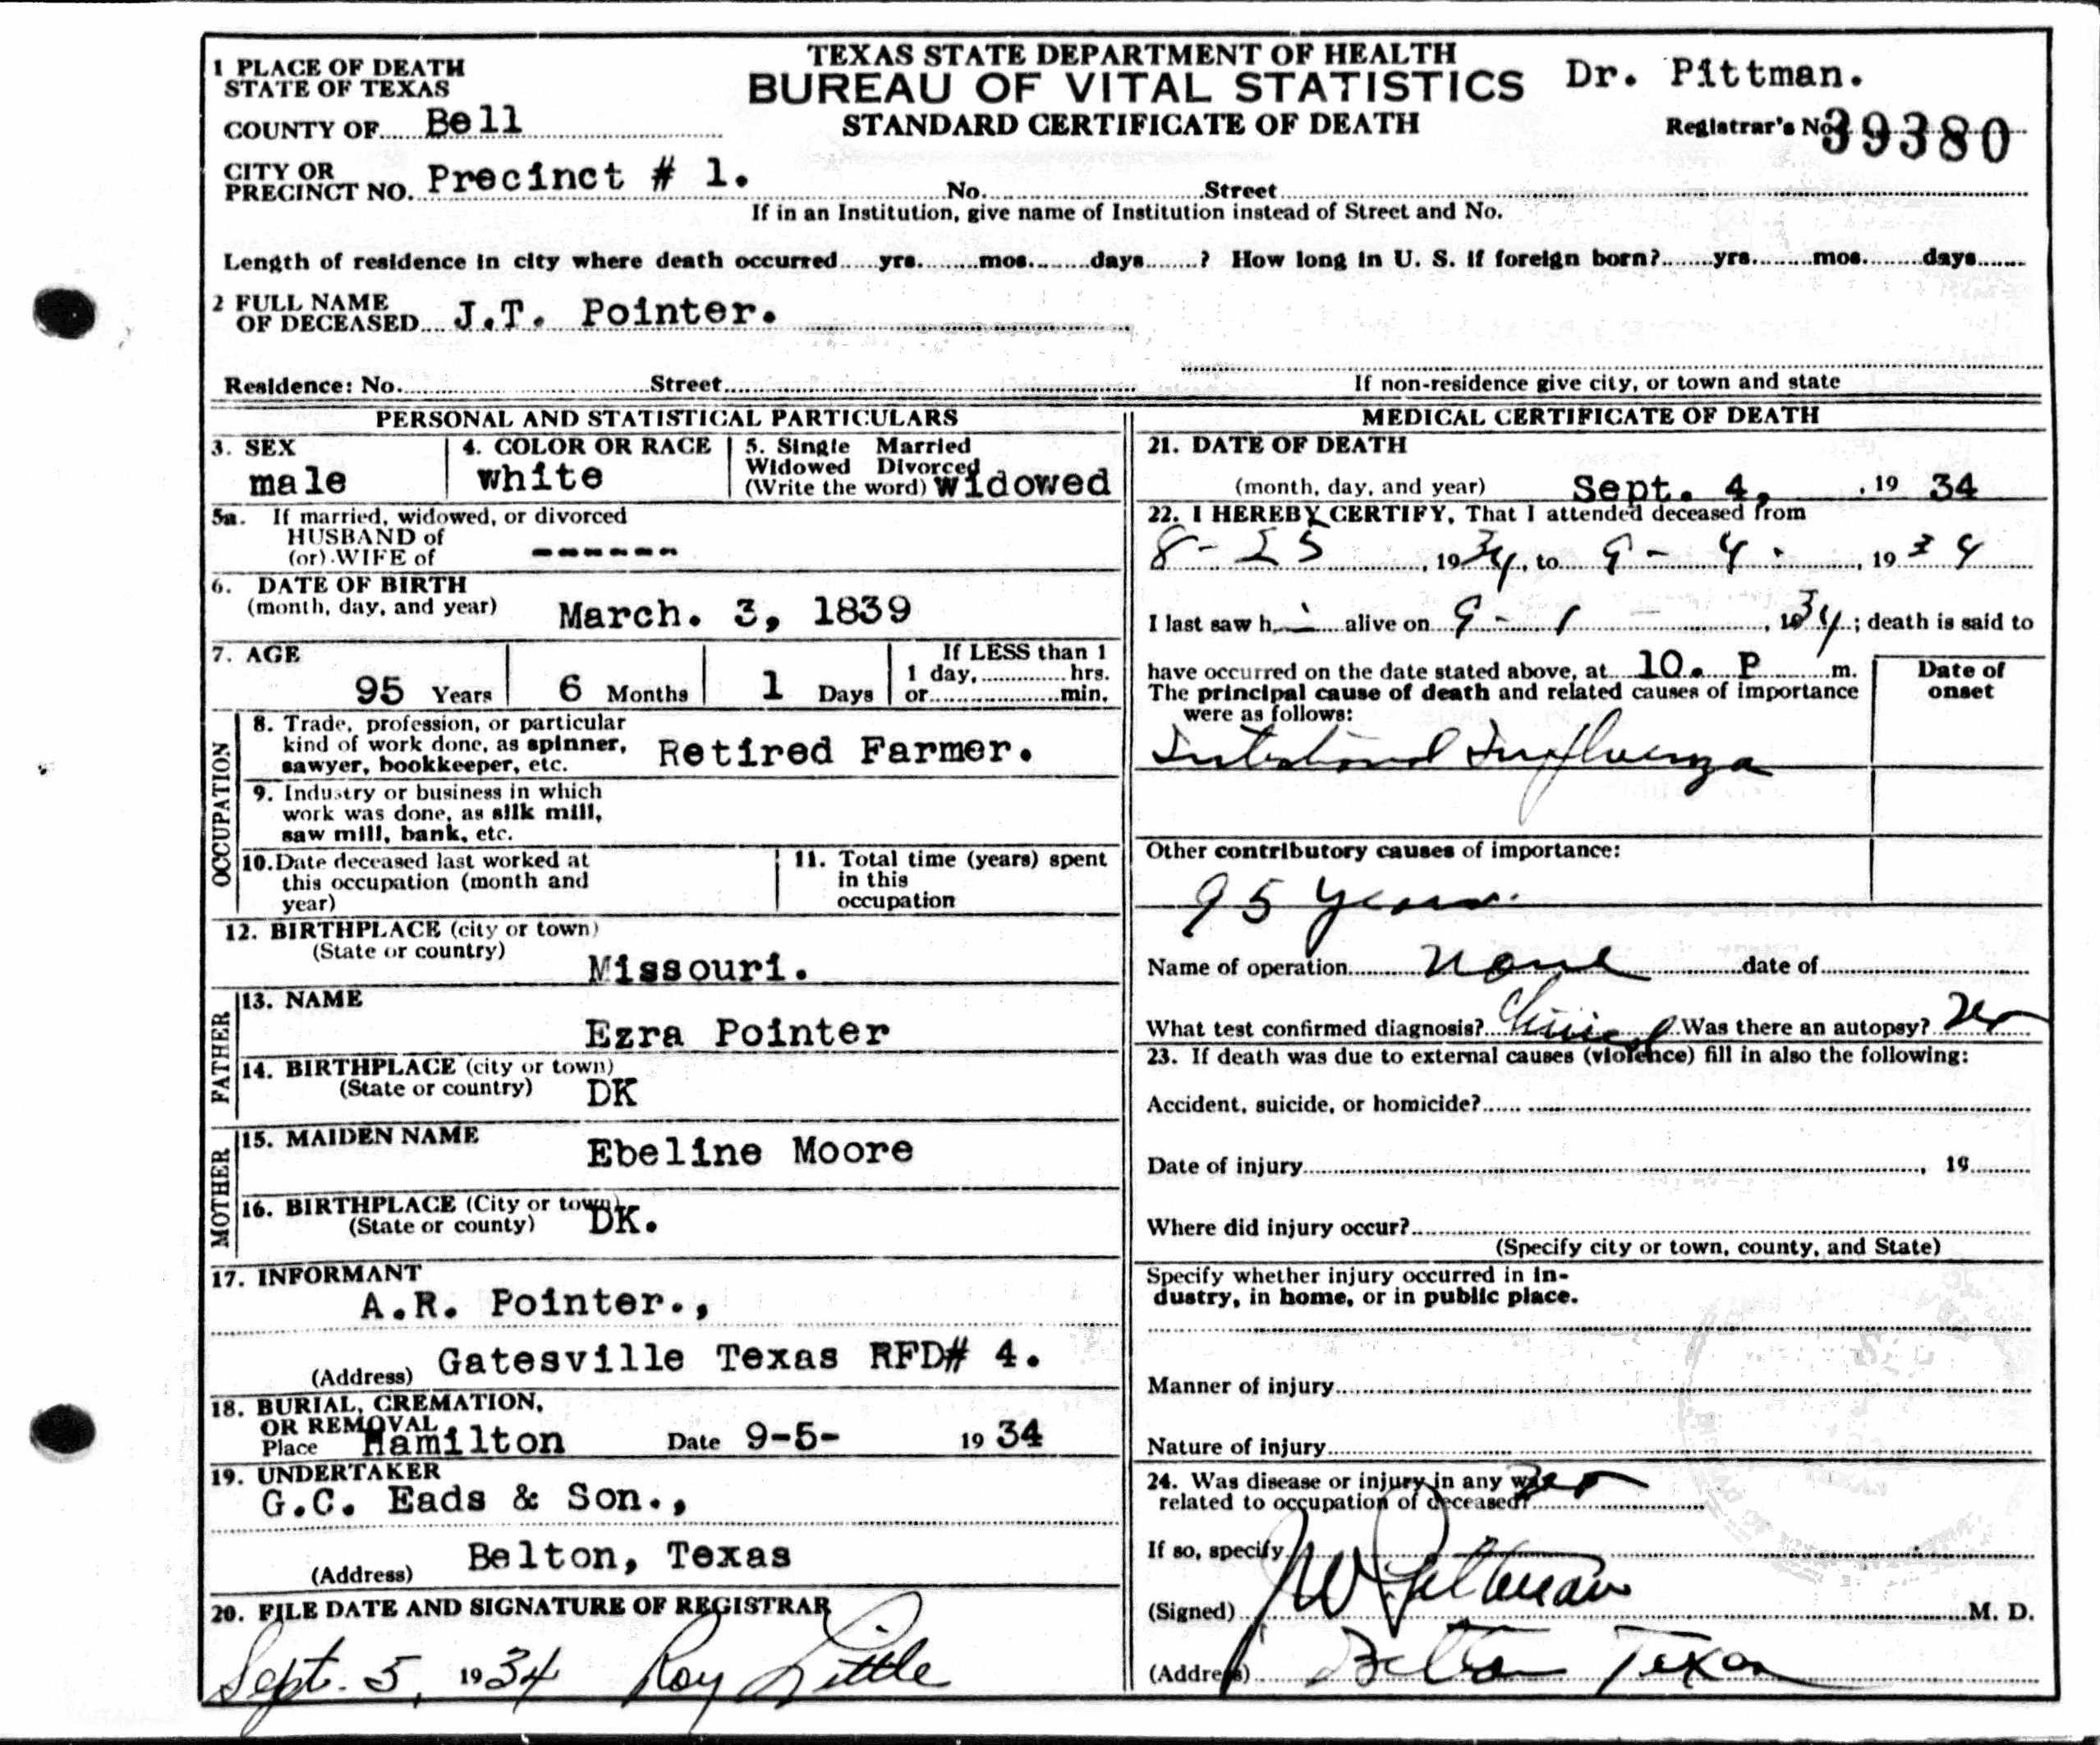 TEXAS STATE DEPARTMENT OF HEALTH
BUREAU OF VITAL STATISTICS
STANDARD CERTIFICATE OF DEATH
Dr. Pittman.
Registrar's No. 39380
1 PLACE OF DEATH
STATE OF TEXAS
COUNTY OF Bell
CITY OR
PRECINCT NO. Precinct # 1. No. Street
If in an Institution, give name of Institution instead of Street and No.
Length of residence in city where death occurred yrs. mos. days ? How long in U. S. if foreign born? yrs. mos. days
2 FULL NAME
OF DECEASED J.T. Pointer.
Residence: No. Street
If non-residence give city, or town and state
PERSONAL AND STATISTICAL PARTICULARS
3. SEX
male
4. COLOR OR RACE
white
5. Single Married
Widowed Divorced
(Write the word) widowed
5a. If married, widowed, or divorced
HUSBAND of
(or) WIFE of ------
6. DATE OF BIRTH
(month, day, and year) March. 3, 1839
7. AGE
95 Years 6 Months 1 Days
If LESS than 1
1 day, hrs.
or min.
OCCUPATION
8. Trade, profession, or particular
kind of work done, as spinner,
sawyer, bookkeeper, etc. Retired Farmer.
9. Industry or business in which
work was done, as silk mill,
saw mill, bank, etc.
10. Date deceased last worked at
this occupation (month and
year)
11. Total time (years) spent
in this
occupation
12. BIRTHPLACE (city or town)
(State or country) Missouri.
FATHER
13. NAME
Ezra Pointer
14. BIRTHPLACE (city or town)
(State or country) DK
MOTHER
15. MAIDEN NAME
Ebeline Moore
16. BIRTHPLACE (City or town)
(State or county) DK.
17. INFORMANT
A.R. Pointer.,
(Address) Gatesville Texas RFD# 4.
18. BURIAL, CREMATION,
OR REMOVAL
Place Hamilton Date 9-5- 19 34
19. UNDERTAKER
G.C. Eads & Son.,
(Address) Belton, Texas
20. FILE DATE AND SIGNATURE OF REGISTRAR
Sept. 5, 1934 Roy Little
MEDICAL CERTIFICATE OF DEATH
21. DATE OF DEATH
(month, day, and year) Sept. 4, , 19 34
22. I HEREBY CERTIFY, That I attended deceased from
8-25, 1934, to 9-4-, 1934
I last saw h i alive on 9-1-, 1934; death is said to
have occurred on the date stated above, at 10. P m.
The principal cause of death and related causes of importance
were as follows:
Date of
onset
Intestional Influenza
Other contributory causes of importance:
95 years.
Name of operation None date of
What test confirmed diagnosis? Clinical Was there an autopsy? no
23. If death was due to external causes (violence) fill in also the following:
Accident, suicide, or homicide?
Date of injury , 19
Where did injury occur?
(Specify city or town, county, and State)
Specify whether injury occurred in in-
dustry, in home, or in public place.
Manner of injury
Nature of injury
24. Was disease or injury in any way no
related to occupation of deceased?
If so, specify
(Signed) JW Pittman M. D.
(Address) Belton Texas